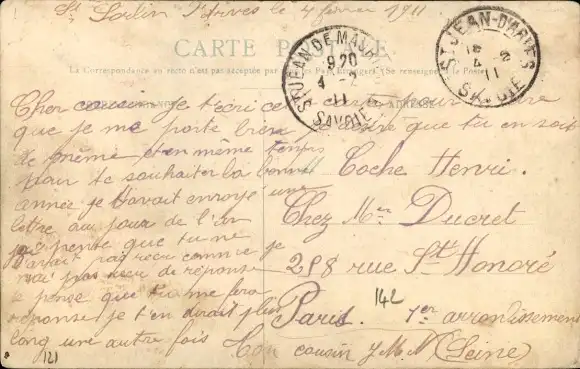 St Sorlin d'Arves le 4 fevrier 1911
CARTE POSTALE
La Correspondance au recto n'est pas acceptée par tous les Pays Etrangers (Se renseigner à la Poste)
ST JEAN DE MAURIENNE
9 20
4 - 2
11
SAVOIE
ST JEAN-D'ARVES
4 2
11
SAVOIE
ADRESSE
Cher cousin je t'écri cette carte pour te dire
que je me porte bien je désire que tu en soit
de même et en meme temps
pour te souhaiter la bonne
année je t'avait envoyé une
lettre au jour de l'an
je pense que tu ne
l'avait pas reçu comme je
n'ai pas reçu de réponse
je pense que tu me fera
réponse je t'en dirait plus
long une autre fois
Ton cousin J. M. N
Coche Henri
Chez Mr Ducret
258 rue St Honoré
Paris. 1er arrondissement
(Seine)
142
121